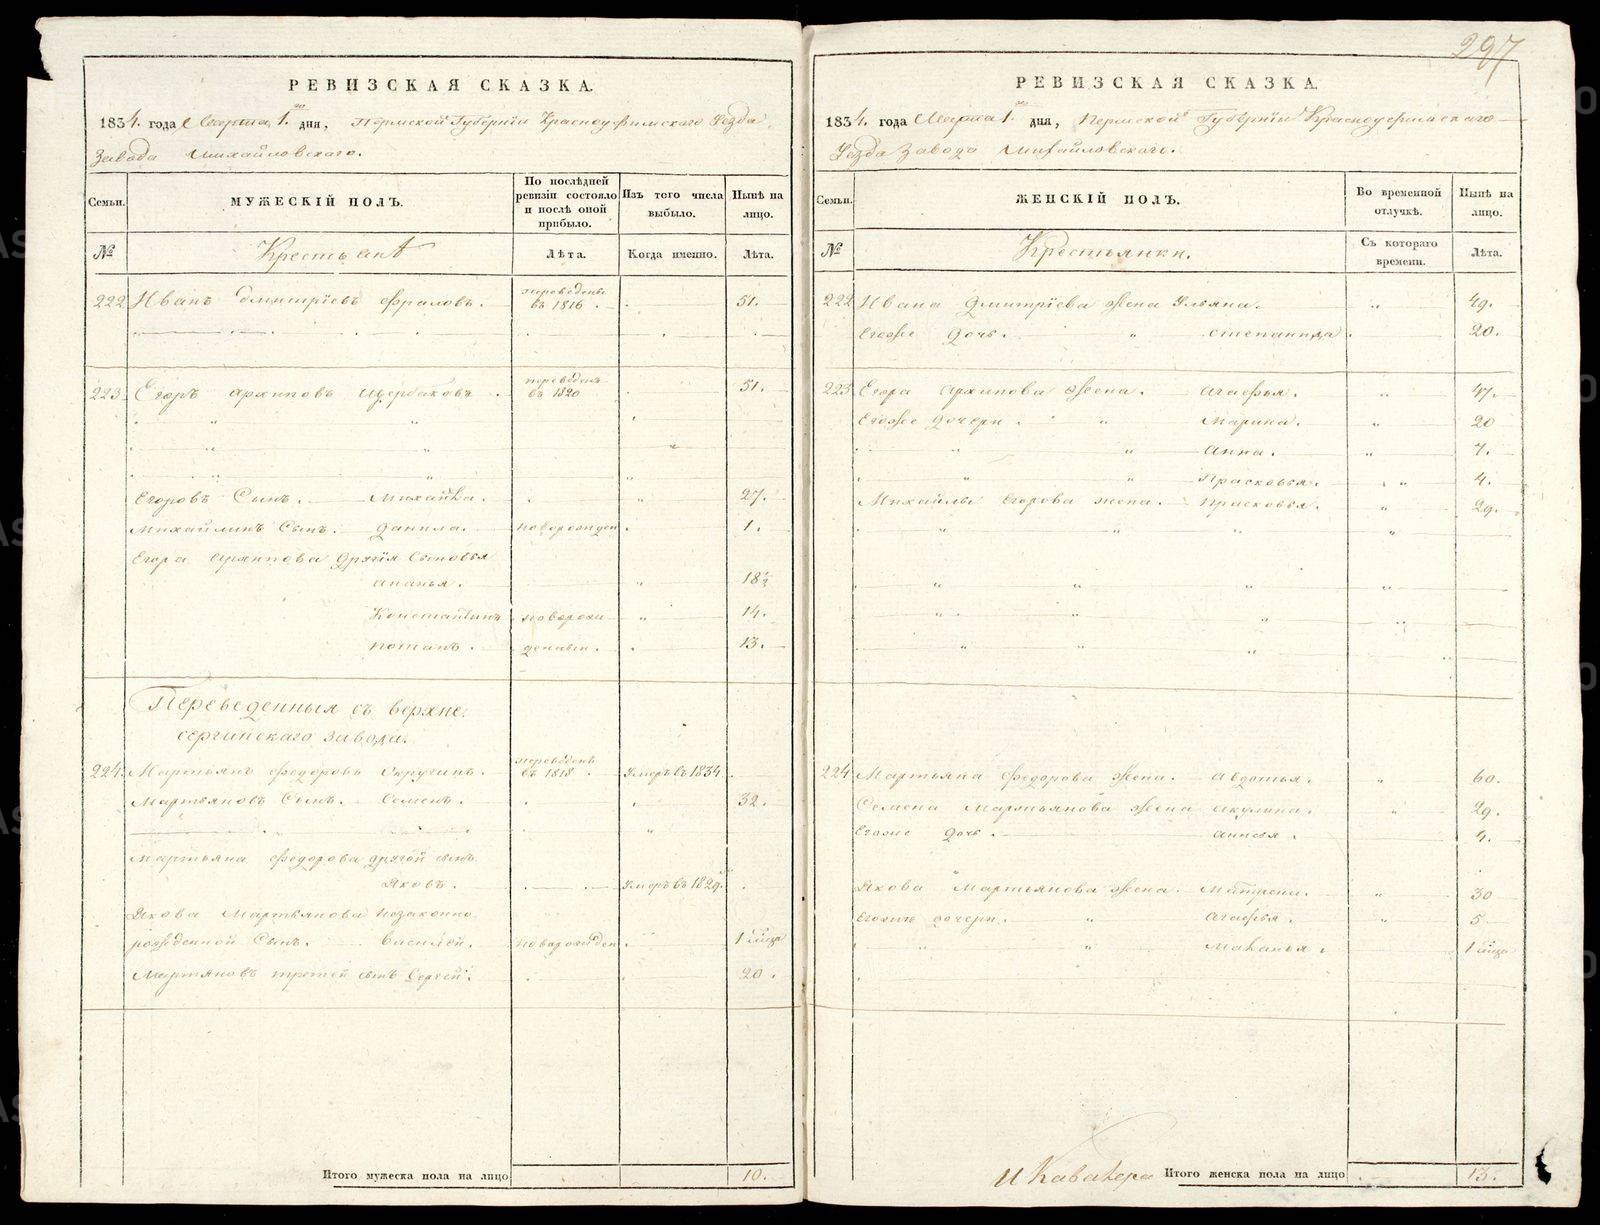 РЕВИЗСКАЯ СКАЗКА.
1834. года Марта 1. дня, Пермской Губернiи Красноуфимскаго Уезда
Завода Михайловскаго.
Семьи.
МУЖЕСКІЙ ПОЛЪ.
По послѣдней ревизіи состояло и послѣ оной прибыло.
Изъ того числа выбыло.
Нынѣ на лицо.
№
Крестьянѣ
Лѣта.
Когда именно.
Лѣта.
222 Иванъ Дмитрiевъ Фраловъ. переведенъ въ 1816. 51.
223 Егоръ Архиповъ Щербаковъ. переведенъ въ 1820 51.
Егоровъ Сынъ. Михайла. 27.
Михайлинъ Сынъ. Данила. новорожден 1.
Егора Архипова Другiя Сыновья
Ананья. 18½
Константинъ новорож 14.
Потапъ. денныи. 13.
Переведенныя съ верхне
сергинскаго завода.
224 Мартьянъ Федоровъ Скругинъ. переведенъ въ 1818. Умеръ въ 1834
Мартьяновъ Сынъ. Семенъ. 32.
Мартьяна Федорова другой сынъ
Яковъ. Умеръ въ 1829.
Якова Мартьянова незаконно
рожденной Сынъ. Василей. новорожден 1
Мартяновъ третей сынъ Сергей. 20.
Итого мужеска пола на лицо 10.
297
РЕВИЗСКАЯ СКАЗКА.
1834. года Марта 1. дня, Пермской Губернiи Красноуфимскаго
Уезда Завода Михайловскаго.
Семьи.
ЖЕНСКІЙ ПОЛЪ.
Во временной отлучкѣ.
Нынѣ на лицо.
№
Крестьянки.
Съ котораго времени.
Лѣта.
222 Ивана Дмитрiева жена Ульяна. 49.
Егоже Дочь. Степанида 20.
223 Егора Архипова жена. Агафья. 47.
Егоже дочери. Марина. 20
Анна. 7.
Прасковья. 4.
Михайлы Егорова жена. Прасковья. 29.
224 Мартьяна Федорова жена. Авдотья. 60.
Семена Мартьянова жена Акулина. 29.
Егоже дочь. Анисья. 4.
Якова Мартьянова жена. Матрена. 30
Егоже дочери. Агафья. 5
Маланья. 1
и Кавалера
Итого женска пола на лицо 13.